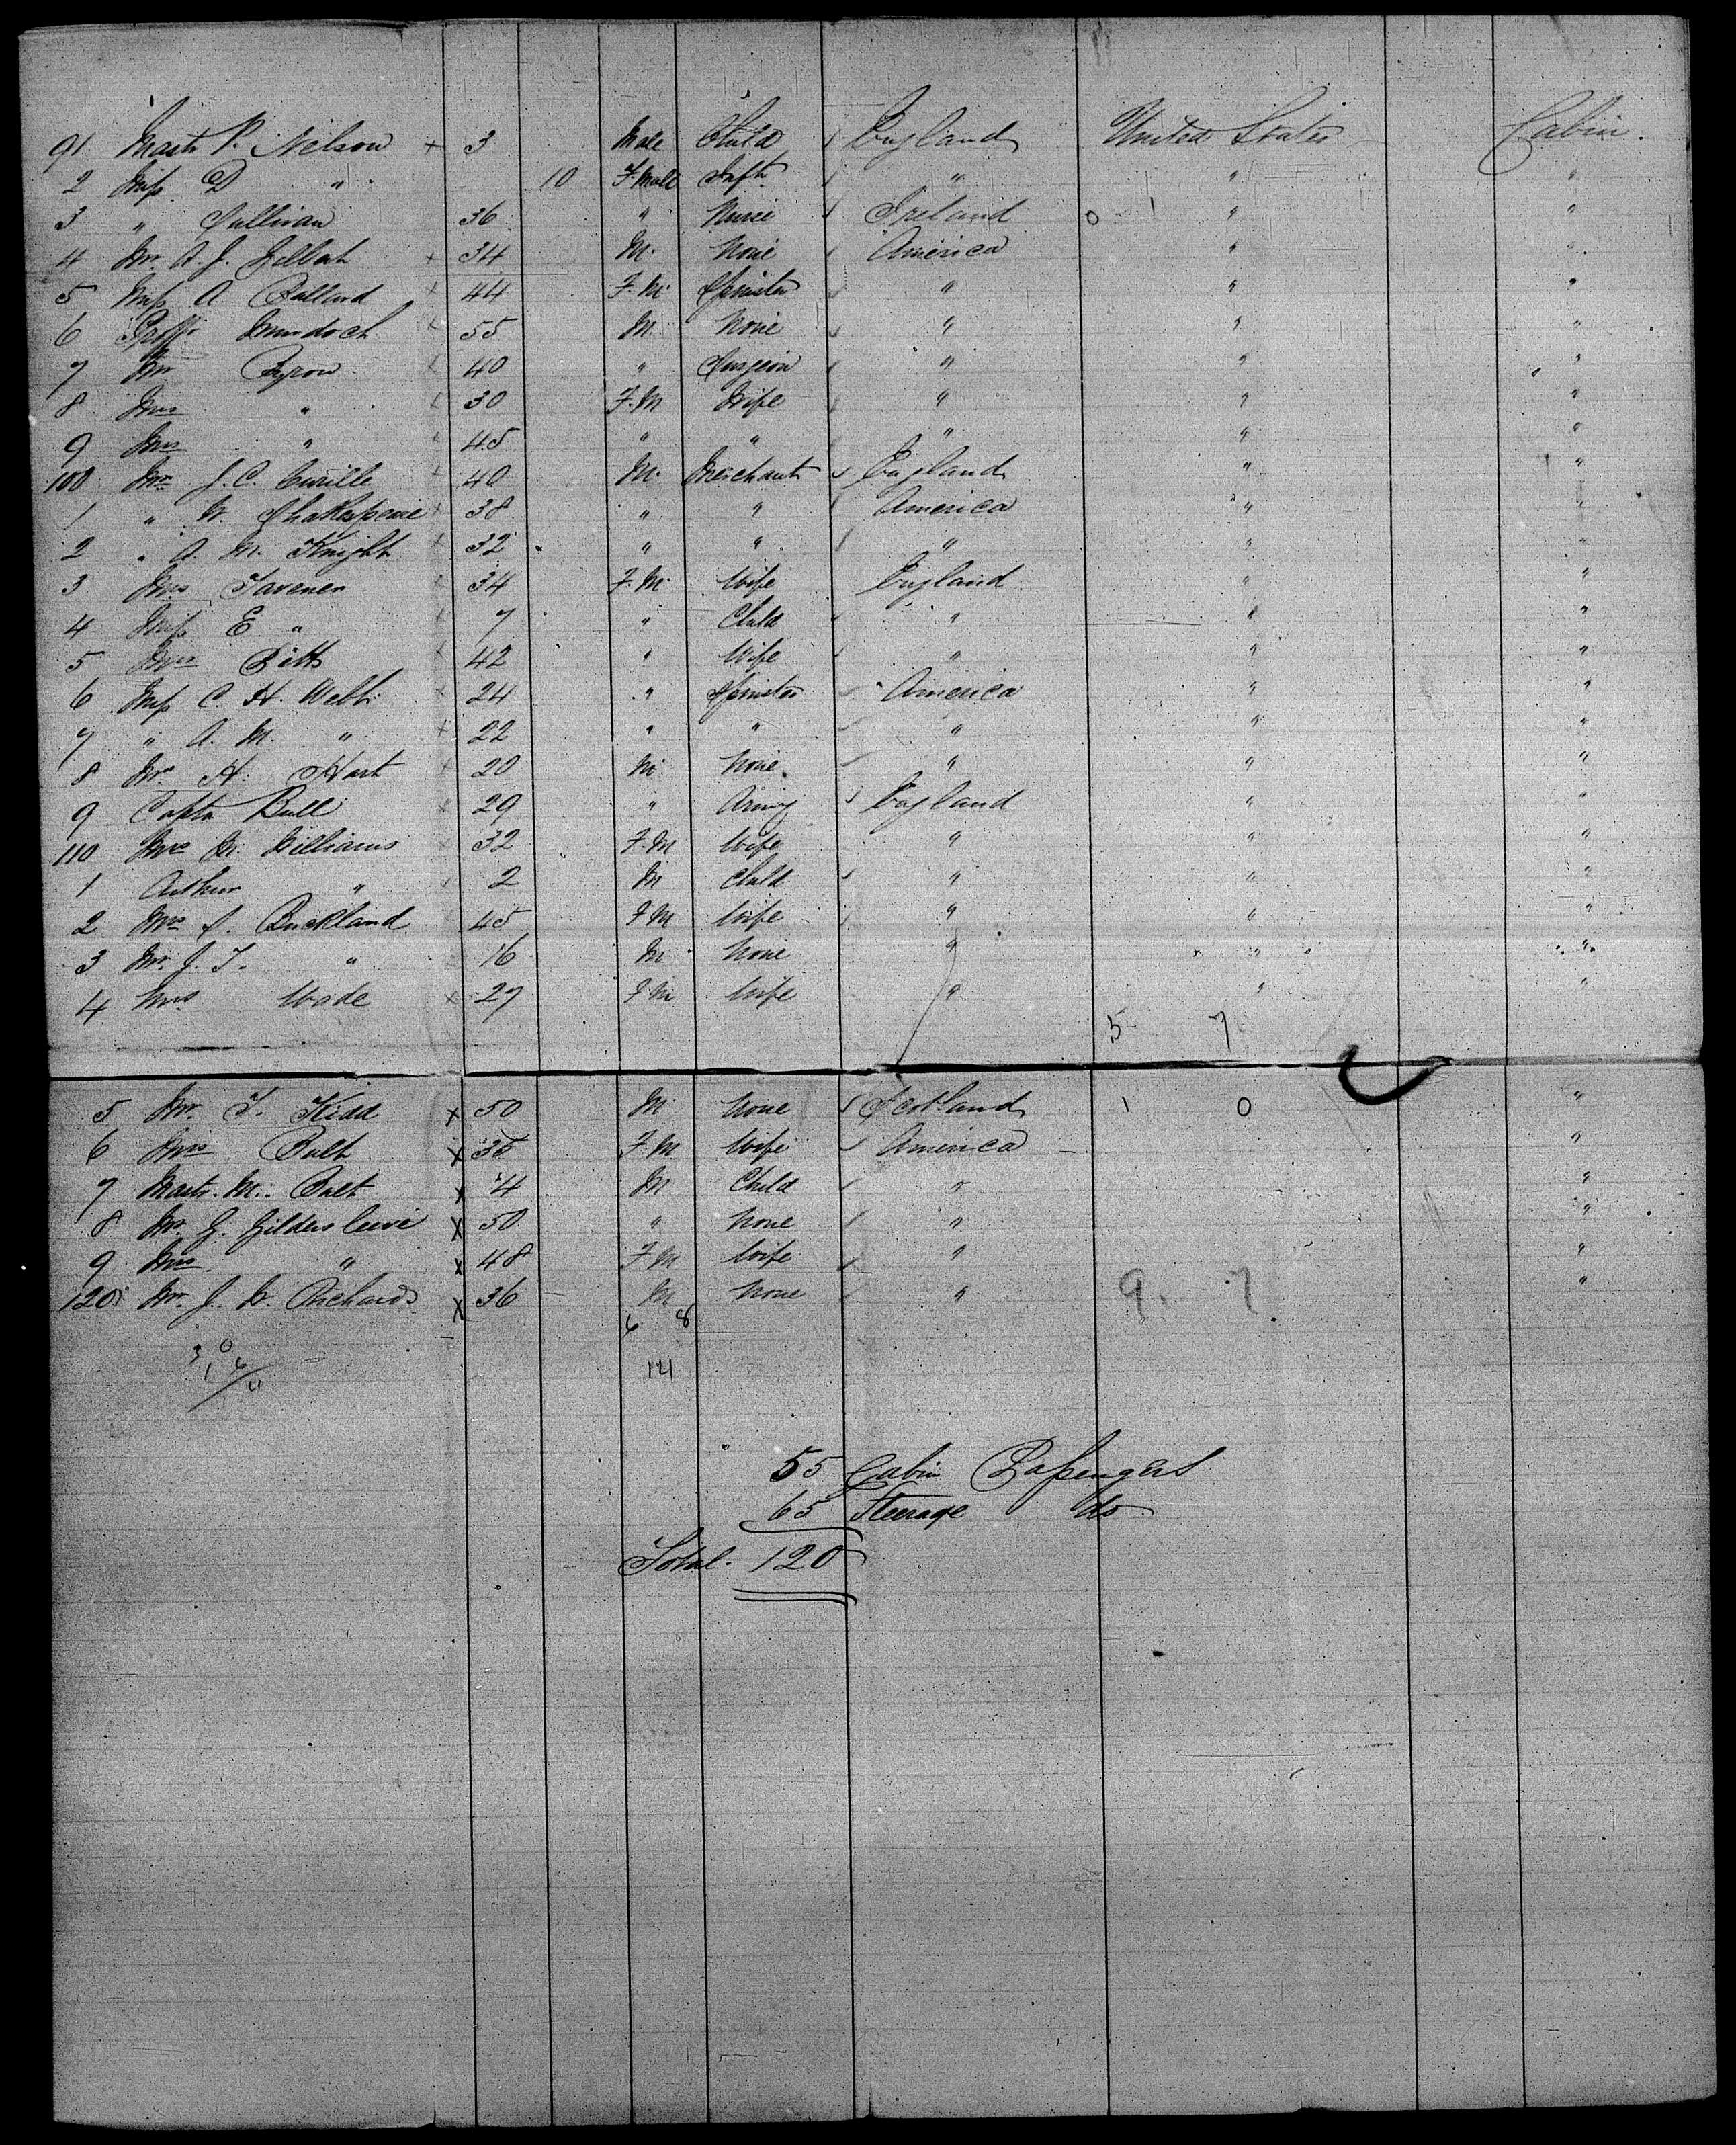 91 Mastr P. Nelson + 3 Male Child England United States Cabin.
2 Miss D " 10 F.Male Inft. " " "
3 " Sullivan 36 " Nurse Ireland 0 1 " "
4 Mr. A. J. + 34 M. None America " "
5 Miss A Ballard + 44 F.M. Spinster " " "
6 Proffr Murdoch + 55 M. None " " "
7 Mr. Byron + 40 " Surgeon " " "
8 Mrs " + 30 F.M Wife " " "
9 Mrs " + 45 " " " " "
100 Mr. J. C. + 40 M. Merchant England " "
1 " W. Shakespeare + 38 " " America " "
2 " A. M. Knight + 32 " " " " "
3 Mrs Tavener + 34 F.M. Wife England " "
4 Miss E " + 7 " Child " " "
5 Mrs Pitts + 42 " Wife " " "
6 Miss C. H. Webb + 24 " Spinster America " "
7 " A. M. " + 22 " " " " "
8 Mr. H. Hart + 20 M None " " "
9 Captn Bull + 29 " Army England " "
110 Mrs M. Williams + 32 F.M Wife " " "
1 Arthur " + 2 M Child " " "
2 Mrs S. Buckland 45 F M Wife " " "
3 Mr. J. T. " 16 M None " " "
4 Mrs Wade x 27 F M Wife " " "
5 7
5 Mr. T. Kidd x 50 M None Scotland 1 0 "
6 Mrs Balt x 35 F.M Wife America "
7 Mastr. M. Balt x 4 M Child " "
8 Mr. G. Gildersleeve x 50 " None " "
9 Mrs " x 48 F M Wife " "
120 Mr. J. W. Richards x 36 M None " 9. 7 "
6 8
141
55 Cabin Passengers
65 Steerage do
Total. 120